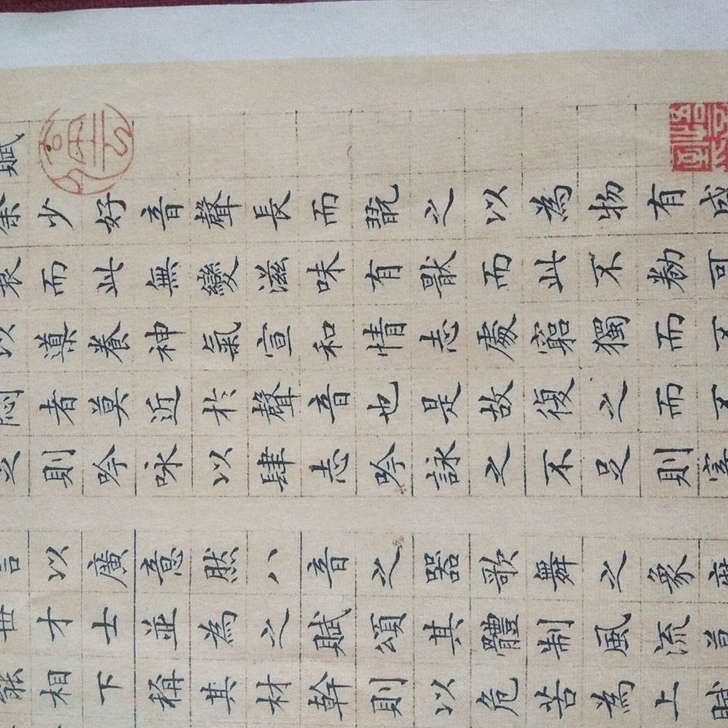 賦
余少好音聲長而翫之以為物有盛
衰而此無變滋味有猒而此不勌可
以導養神氣宣和情志處窮獨而不
悶者莫近於聲音也是故復之而不
足則吟咏以肆志吟詠之不足則寄
言以廣意然八音之器歌舞之象歷
世才士並為之賦頌其體制風流莫
相下稱其材幹則以危苦為上賦